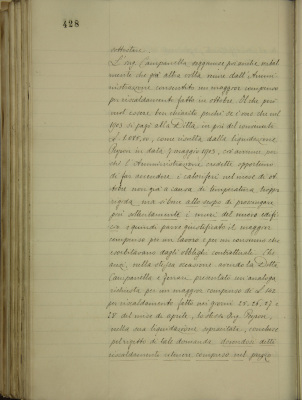 428
sottostare.
L'Ing. Campanella soggiunse poi anche verbal
mente che già altra volta venne dall'Ammi
nistrazione consentito un maggiore compenso
per riscaldamento fatto in ottobre. Il che però
vuol essere ben chiarito perchè se è vero che nel
1903 si pagò alla Ditta, in più del convenuto
come risulta dalla liquidazione
Peyron in data 7 maggio 1903, ciò avvenne per
chè l'Amministrazione credette opportuno
di far accendere i caloriferi nel mese di ot
tobre non già a causa di temperatura troppo
rigida, ma sì bene allo scopo di prosciugare
più celermente i muri del nuovo edifi
cio, e quindi parve giustificato il maggior
compenso per un lavoro e per un consumo che
esorbitavano dagli obblighi contrattuali. Che
anzi, nella stessa occasione avendo la Ditta
Campanella e presentato un'analoga
richiesta per un maggiore compenso di L.
per riscaldamento fatto nei giorni 25, 26, 27 e
28 del mese di aprile, lo stesso Ing. Peyron,
nella sua liquidazione concluse
pel rigetto di tale domanda dovendosi detto
riscaldamento ritenere compreso nel prezzo